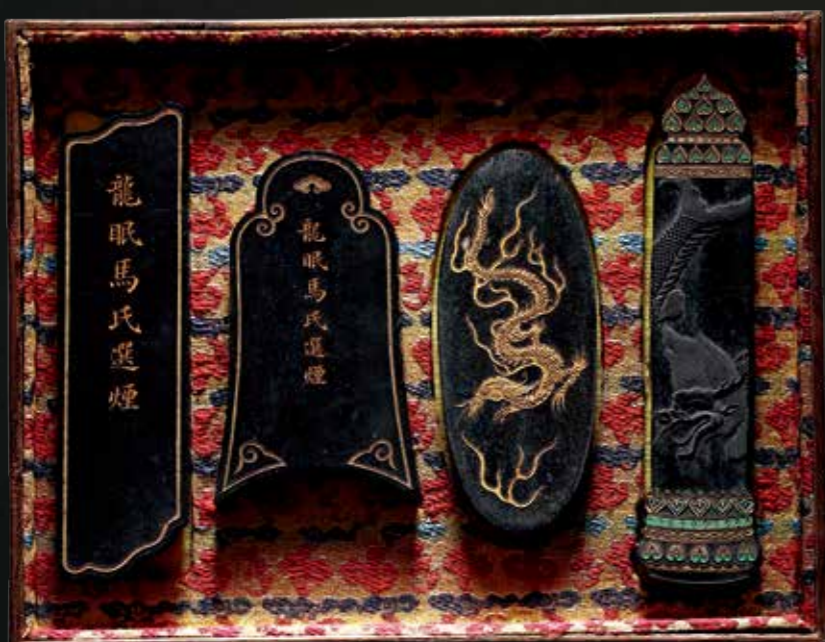 龍眠馬氏選煙
龍眠馬氏選煙